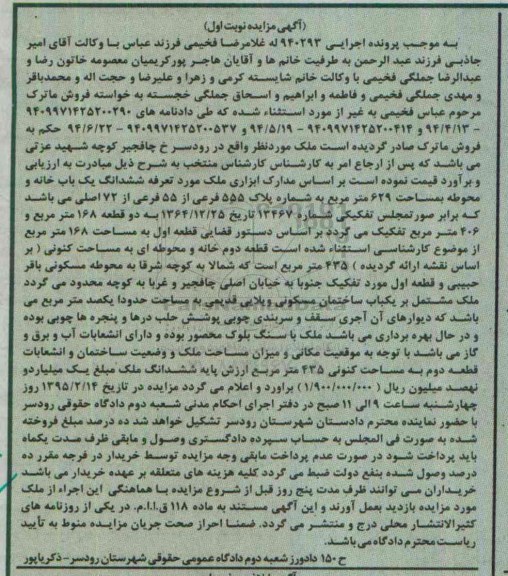 (آگهی مزایده نوبت اول)
به موجب پرونده اجرایی ۹۴۰۲۹۳ له غلامرضا فخیمی فرزند عباس با وکالت آقای امیر
جاذبی فرزند عبد الرحمن به طرفیت خانم ها و آقایان هاجر پورکریمیان معصومه خاتون رضا و
عبدالرضا جملگی فخیمی با وکالت خانم شایسته کرمی و زهرا و علیرضا و حجت اله و محمدباقر
و مهدی جملگی فخیمی و فاطمه و ابراهیم و اسحاق جملگی خجسته به خواسته فروش ماترک
مرحوم عباس فخیمی به غیر از مورد استثناء شده که طی دادنامه های ۹۴۰۹۹۷۱۴۲۵۲۰۰۲۹۰
– ۹۴/۴/۱۳ و ۹۴۰۹۹۷۱۴۲۵۲۰۰۴۱۴ – ۹۴/۵/۱۹ و ۹۴۰۹۹۷۱۴۲۵۲۰۰۵۳۷ – ۹۴/۶/۲۲ حکم به
فروش ماترک صادر گردیده است ملک موردنظر واقع در رودسر خ چافجیر کوچه شهید عزتی
می باشد که پس از ارجاع امر به کارشناس کارشناس منتخب به شرح ذیل مبادرت به ارزیابی
و برآورد قیمت نموده است بر اساس مدارک ابرازی ملک مورد تعرفه ششدانگ یک باب خانه و
محوطه بمساحت ۶۲۹ متر مربع به شماره پلاک ۵۵۵ فرعی از ۵۵ فرعی از ۷۲ اصلی می باشد
که برابر صورتمجلس تفکیکی شماره ۱۳۴۶۷ تاریخ ۱۳۶۴/۱۲/۲۵ به دو قطعه ۱۶۸ متر مربع و
۴۰۶ متر مربع تفکیک می گردد بر اساس دستور قضایی قطعه اول به مساحت ۱۶۸ متر مربع
از موضوع کارشناسی استثناء شده است قطعه دوم خانه و محوطه ای به مساحت کنونی ( بر
اساس نقشه ارائه گردیده ) ۴۳۵ متر مربع است که شمالا به کوچه شرقا به محوطه مسکونی باقر
حبیبی و قطعه اول مورد تفکیک جنوبا به خیابان اصلی چافجیر و غربا به کوچه محدود می گردد
ملک مشتمل بر یکباب ساختمان مسکونی ویلایی قدیمی به مساحت حدودا یکصد متر مربع می
باشد که دیوارهای آن آجری سقف و سربندی چوبی پوشش حلب درها و پنجره ها چوبی بوده
و در حال بهره برداری می باشد ملک با سنگ بلوک محصور بوده و دارای انشعابات آب و برق و
گاز می باشد با توجه به موقعیت مکانی و میزان مساحت ملک و وضعیت ساختمان و انشعابات
قطعه دوم به مساحت کنونی ۴۳۵ متر مربع ارزش پایه ششدانگ ملک مبلغ یک میلیاردو
نهصد میلیون ریال ( ۱/۹۰۰/۰۰۰/۰۰۰) برآورد و اعلام می گردد مزایده در تاریخ ۱۳۹۵/۲/۱۴ روز
چهارشنبه ساعت ۹ الی ۱۱ صبح در دفتر اجرای احکام مدنی شعبه دوم دادگاه حقوقی رودسر
با حضور نماینده محترم دادستان شهرستان رودسر تشکیل خواهد شد ده درصد مبلغ فروخته
شده به صورت فی المجلس به حساب سپرده دادگستری وصول و مابقی ظرف مدت یکماه
باید پرداخت شود در صورت عدم پرداخت مابقی وجه مزایده توسط خریدار در فرجه مقرر ده
درصد وصول شده بنفع دولت ضبط می گردد کلیه هزینه های متعلقه بر عهده خریدار می باشد
خریداران می توانند ظرف مدت پنج روز قبل از شروع مزایده با هماهنگی این اجراء از ملک
مورد مزایده بازدید بعمل آورند و این آگهی مستند به ماده ۱۱۸ ق.ا.ا.م. در یکی از روزنامه های
کثیرالانتشار محلی درج و منتشر می گردد. ضمنا احراز صحت جریان مزایده منوط به تأیید
ریاست محترم دادگاه می باشد.
ح ۱۵۰ دادورز شعبه دوم دادگاه عمومی حقوقی شهرستان رودسر – ذکریاپور